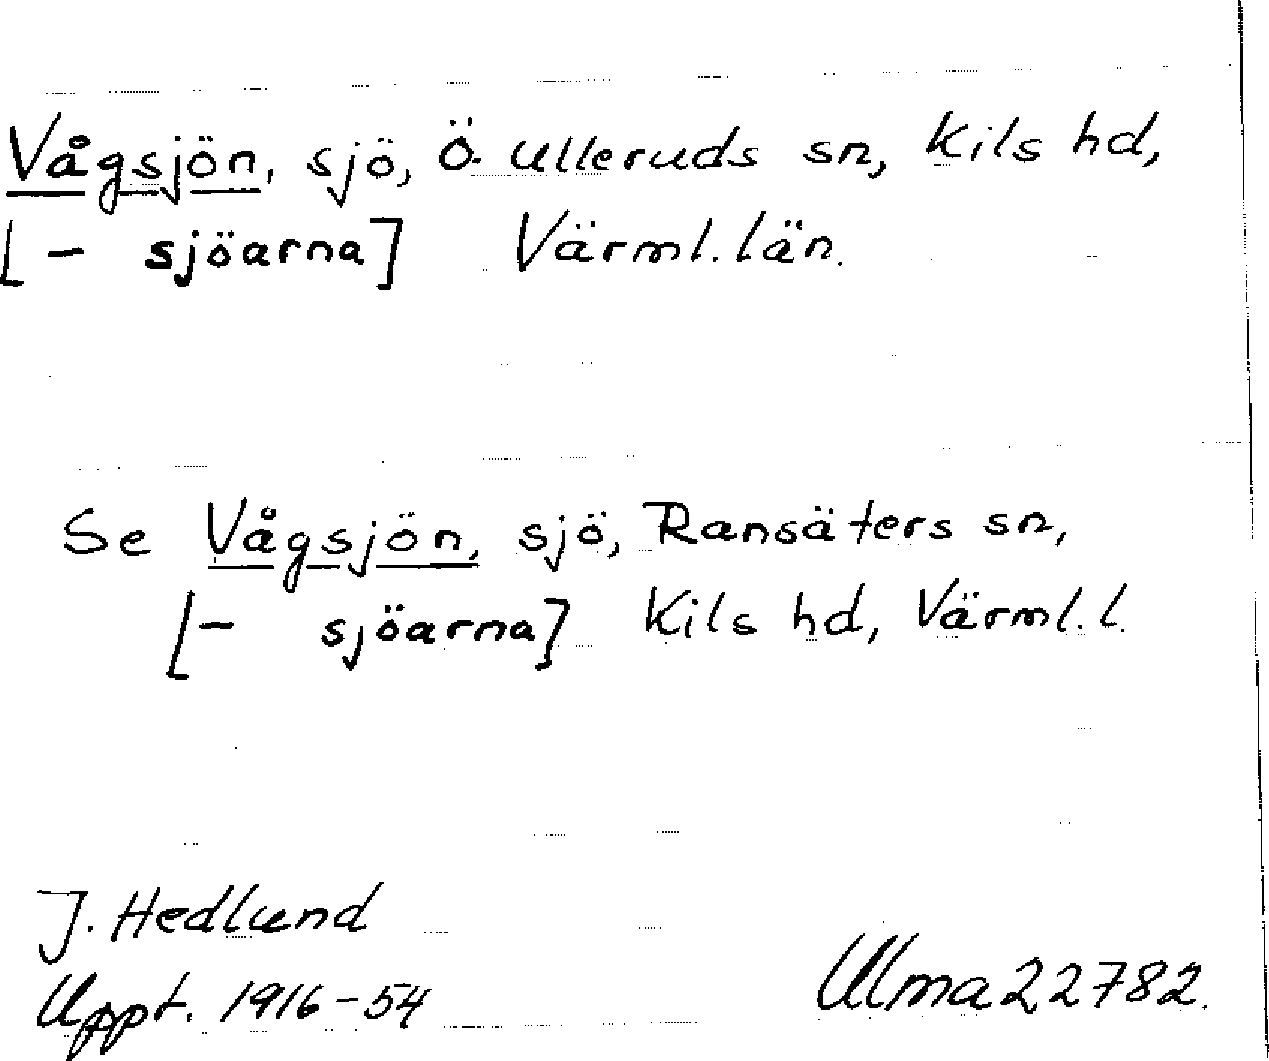 Vågsjön, sjö, Ö. Ulleruds sn, Kils hd,
[- sjöarna] Värml. län.
Se Vågsjön, sjö, Ransäters sn,
[- sjöarna] Kils hd, Värml. l.
J. Hedlund
Uppt. 1916-54
Ulma 22782.